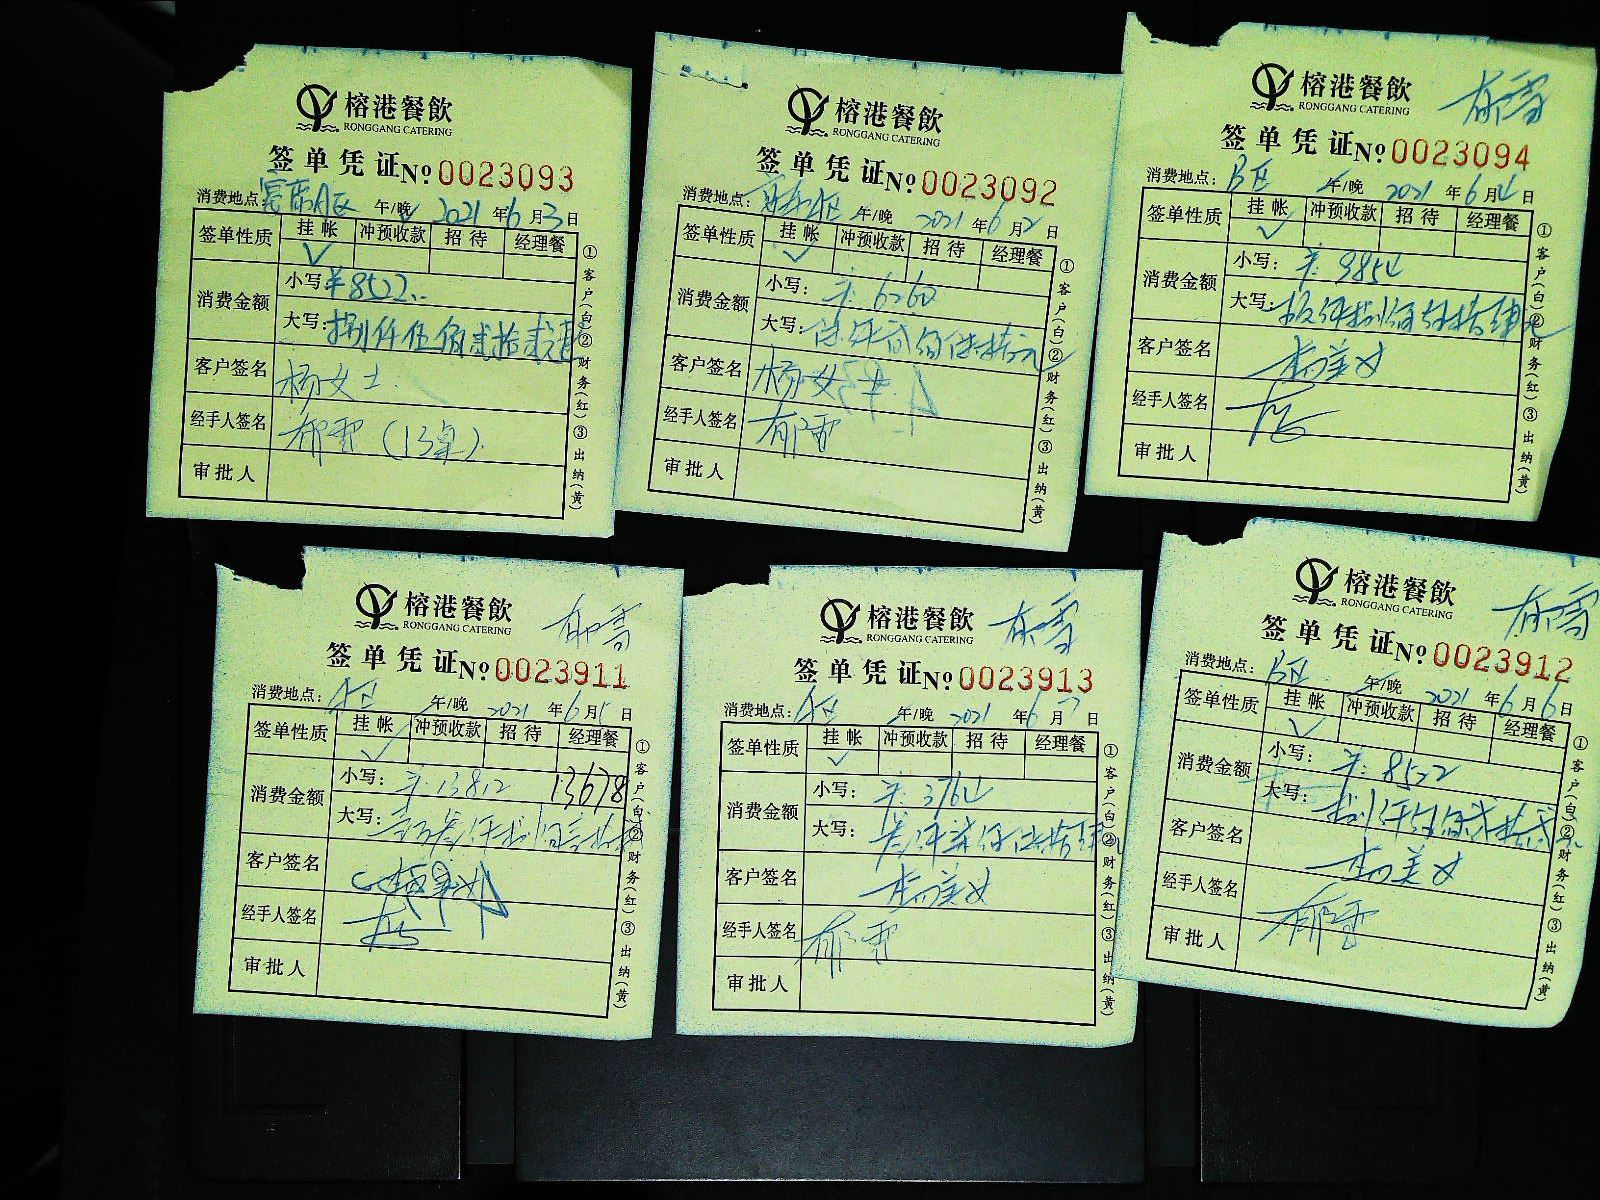 榕港餐飲
RONGGANG CATERING
签单凭证 № 0023093
消费地点: 宴席A区 午/晚 2021年6月3日
签单性质 挂帐 冲预收款 招待 经理餐
✓
消费金额 小写: ¥8522..
大写: 捌仟伍佰贰拾贰元
客户签名 杨女士
经手人签名 郁雪 (13桌)
审批人
①客户(白)②财务(红)③出纳(黄)
榕港餐飲
RONGGANG CATERING
签单凭证 № 0023092
消费地点: A区 午/晚 2021年6月2日
签单性质 挂帐 冲预收款 招待 经理餐
✓
消费金额 小写: ¥:6260
大写: 陆仟贰佰陆拾元
客户签名 杨女士
经手人签名 郁雪
审批人
①客户(白)②财务(红)③出纳(黄)
榕港餐飲
RONGGANG CATERING
郁雪
签单凭证 № 0023094
消费地点: B区 午/晚 2021年6月4日
签单性质 挂帐 冲预收款 招待 经理餐
✓
消费金额 小写: ¥:9854
大写: 玖仟捌佰伍拾肆元
客户签名 杨美女
经手人签名
审批人
①客户(白)②财务(红)③出纳(黄)
榕港餐飲
RONGGANG CATERING
郁雪
签单凭证 № 0023911
消费地点: A区 午/晚 2021年6月5日
签单性质 挂帐 冲预收款 招待 经理餐
✓
消费金额 小写: ¥:13812 13678
大写: 壹万叁仟捌佰壹拾贰
客户签名
经手人签名
审批人
①客户(白)②财务(红)③出纳(黄)
榕港餐飲
RONGGANG CATERING
郁雪
签单凭证 № 0023913
消费地点: A区 午/晚 2021年6月7日
签单性质 挂帐 冲预收款 招待 经理餐
✓
消费金额 小写: ¥:3764
大写: 叁仟柒佰陆拾肆元
客户签名 杨美女
经手人签名 郁雪
审批人
①客户(白)②财务(红)③出纳(黄)
榕港餐飲
RONGGANG CATERING
郁雪
签单凭证 № 0023912
消费地点: B区 午/晚 2021年6月6日
签单性质 挂帐 冲预收款 招待 经理餐
✓
消费金额 小写: ¥:8522
大写: 捌仟伍佰贰拾贰元
客户签名 杨美女
经手人签名 郁雪
审批人
①客户(白)②财务(红)③出纳(黄)